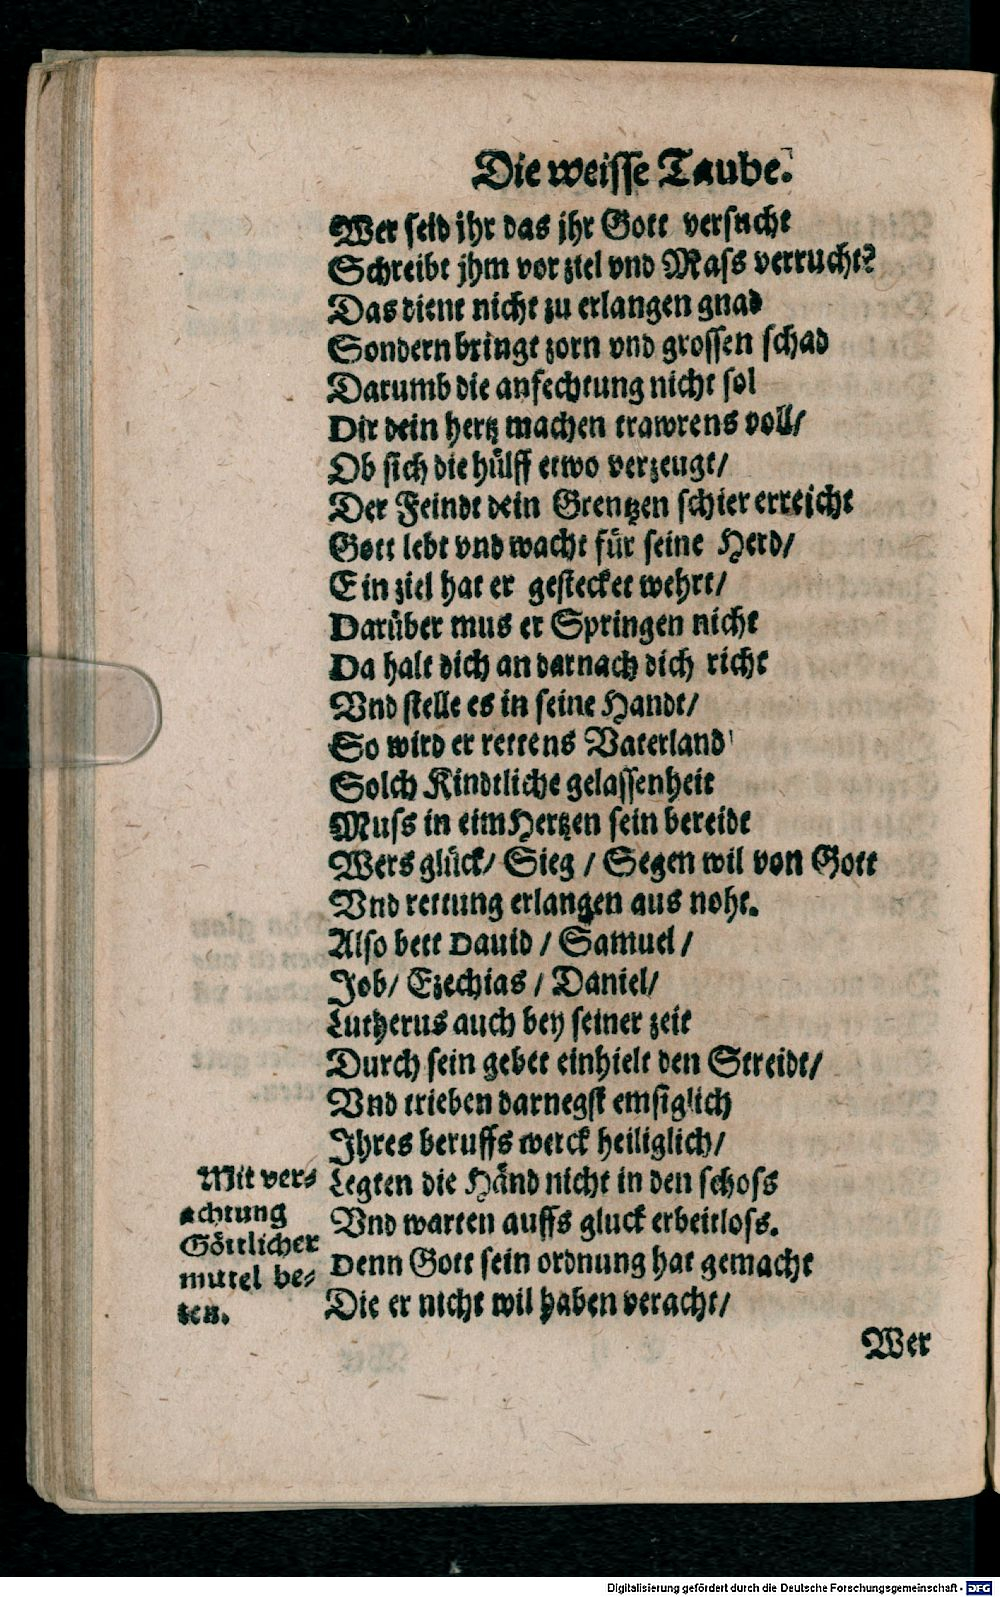 Die weisse Taube.
Wer seid jhr das jhr Gott versucht
Schreibt jhm vor ziel vnd Mass verrucht?
Das dient nicht zu erlangen gnad
Sondern bringt zorn vnd grossen schad
Darumb die anfechtung nicht sol
Dir dein hertz machen trawrens voll/
Ob sich die hülff etwo verzeugt/
Der Feindt dein Grentzen schier erreicht
Gott lebt vnd wacht für seine Herd/
Ein ziel hat er gestecket wehrt/
Darüber mus er Springen nicht
Da halt dich an darnach dich richt
Vnd stelle es in seine Handt/
So wird er rettens Vaterland
Solch Kindtliche gelassenheit
Muss in eim Hertzen sein bereidt
Wers glück/ Sieg / Segen wil von Gott
Vnd rettung erlangen aus noht.
Also bett Dauid / Samuel /
Job/ Ezechias / Daniel/
Lutherus auch bey seiner zeit
Durch sein gebet einhielt den Streidt/
Vnd trieben darnegst emsiglich
Jhres beruffs werck heiliglich/
Mit ver-
achtung
Göttlicher
mittel be-
ten.
Legten die Händ nicht in den schoss
Vnd warten auffs gluck erbeitloss.
Denn Gott sein ordnung hat gemacht
Die er nicht wil haben veracht/
Wer
Digitalisierung gefördert durch die Deutsche Forschungsgemeinschaft - DFG